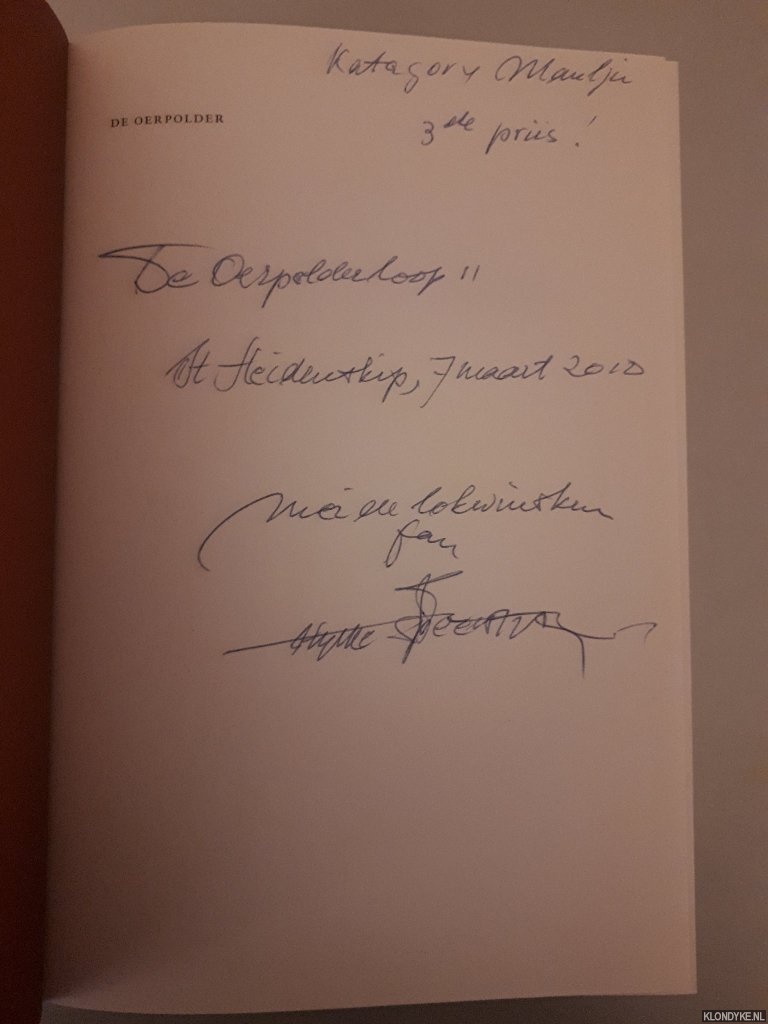 Katagory Manlju
3de priis!
DE OERPOLDER
De Oerpolderloop II
It Heidenskip, 7 maart 2010
Mei de lokwinsken
fan
Hylke Speerstra
KLONDYKE.NL